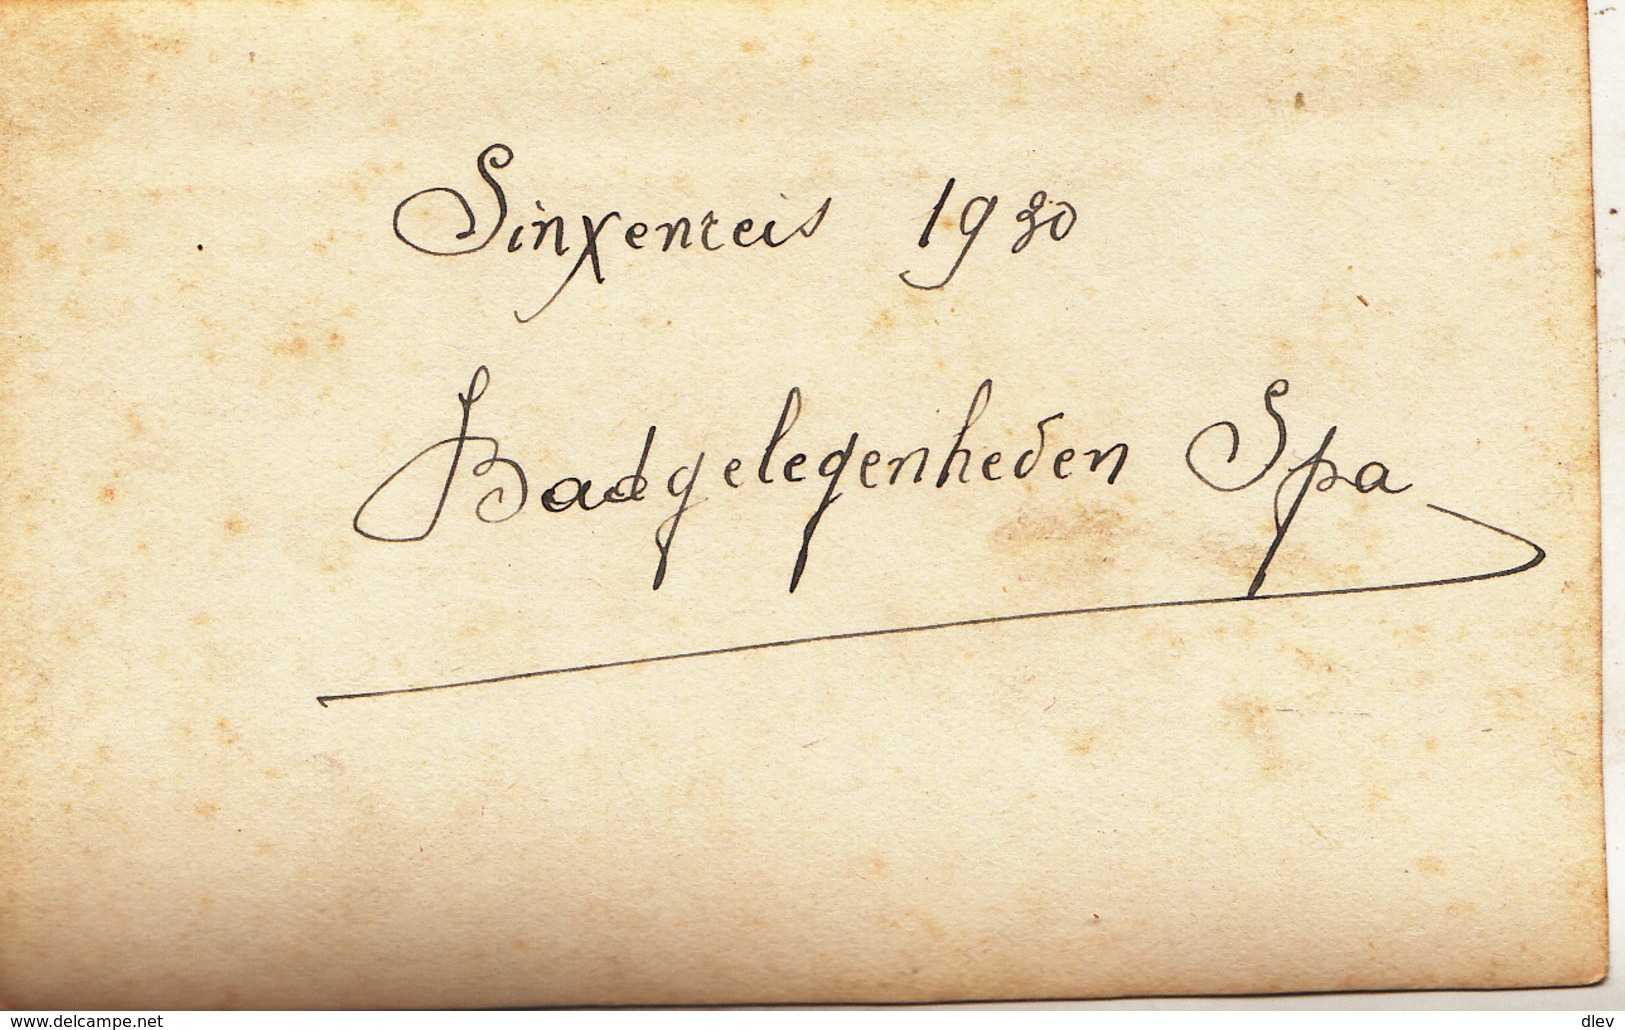 Sinxenreis 1930
Badgelegenheden Spa
delcampe.net
dlev